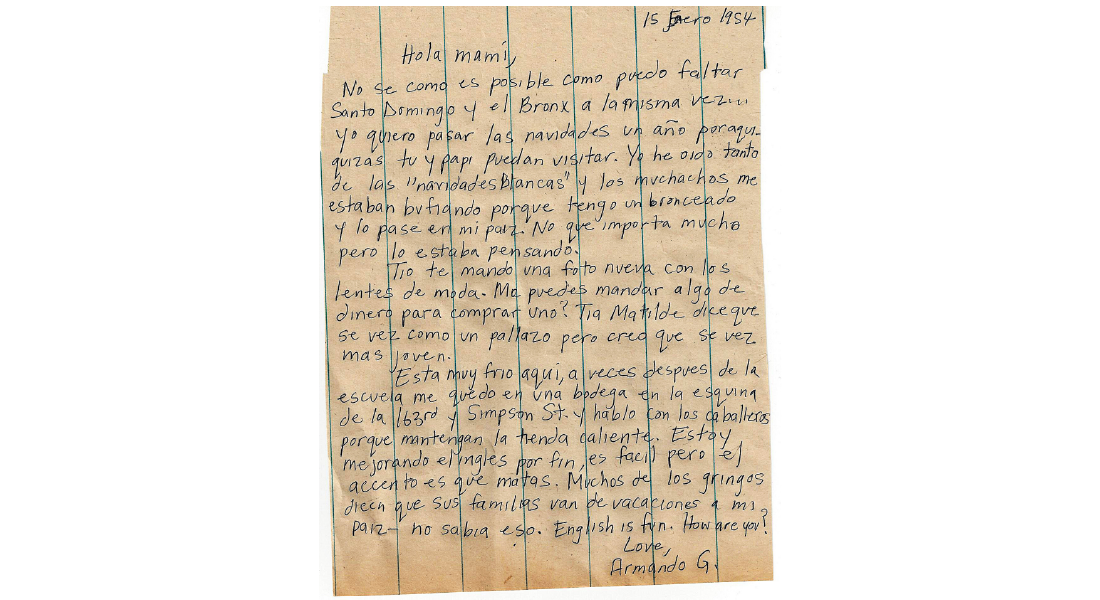 15 Enero 1954
Hola mami,
No se como es posible como puedo faltar
Santo Domingo y el Bronx a la misma vez...
Yo quiero pasar las navidades un año poraqui-
quizas tu y papi puedan visitar. Yo he oido tanto
de las "navidades Blancas" y los muchachos me
estaban bufiando porque tengo un bronceado
y lo pase en mi paiz. No que importa mucho
pero lo estaba pensando.
Tio te mando una foto nueva con los
lentes de moda. Me puedes mandar algo de
dinero para comprar uno? Tia Matilde dice que
se vez como un pallazo pero creo que se vez
mas joven.
Esta muy frio aqui, a veces despues de la
escuela me quedo en una bodega en la esquina
de la 163rd y Simpson St. y hablo con los caballeros
porque mantengan la tienda caliente. Estoy
mejorando el ingles por fin, es facil pero el
accento es que matas. Muchos de los gringos
dicen que sus familias van de vacaciones a mi
paiz- no sabia eso. English is fun. How are you?
Love,
Armando G.